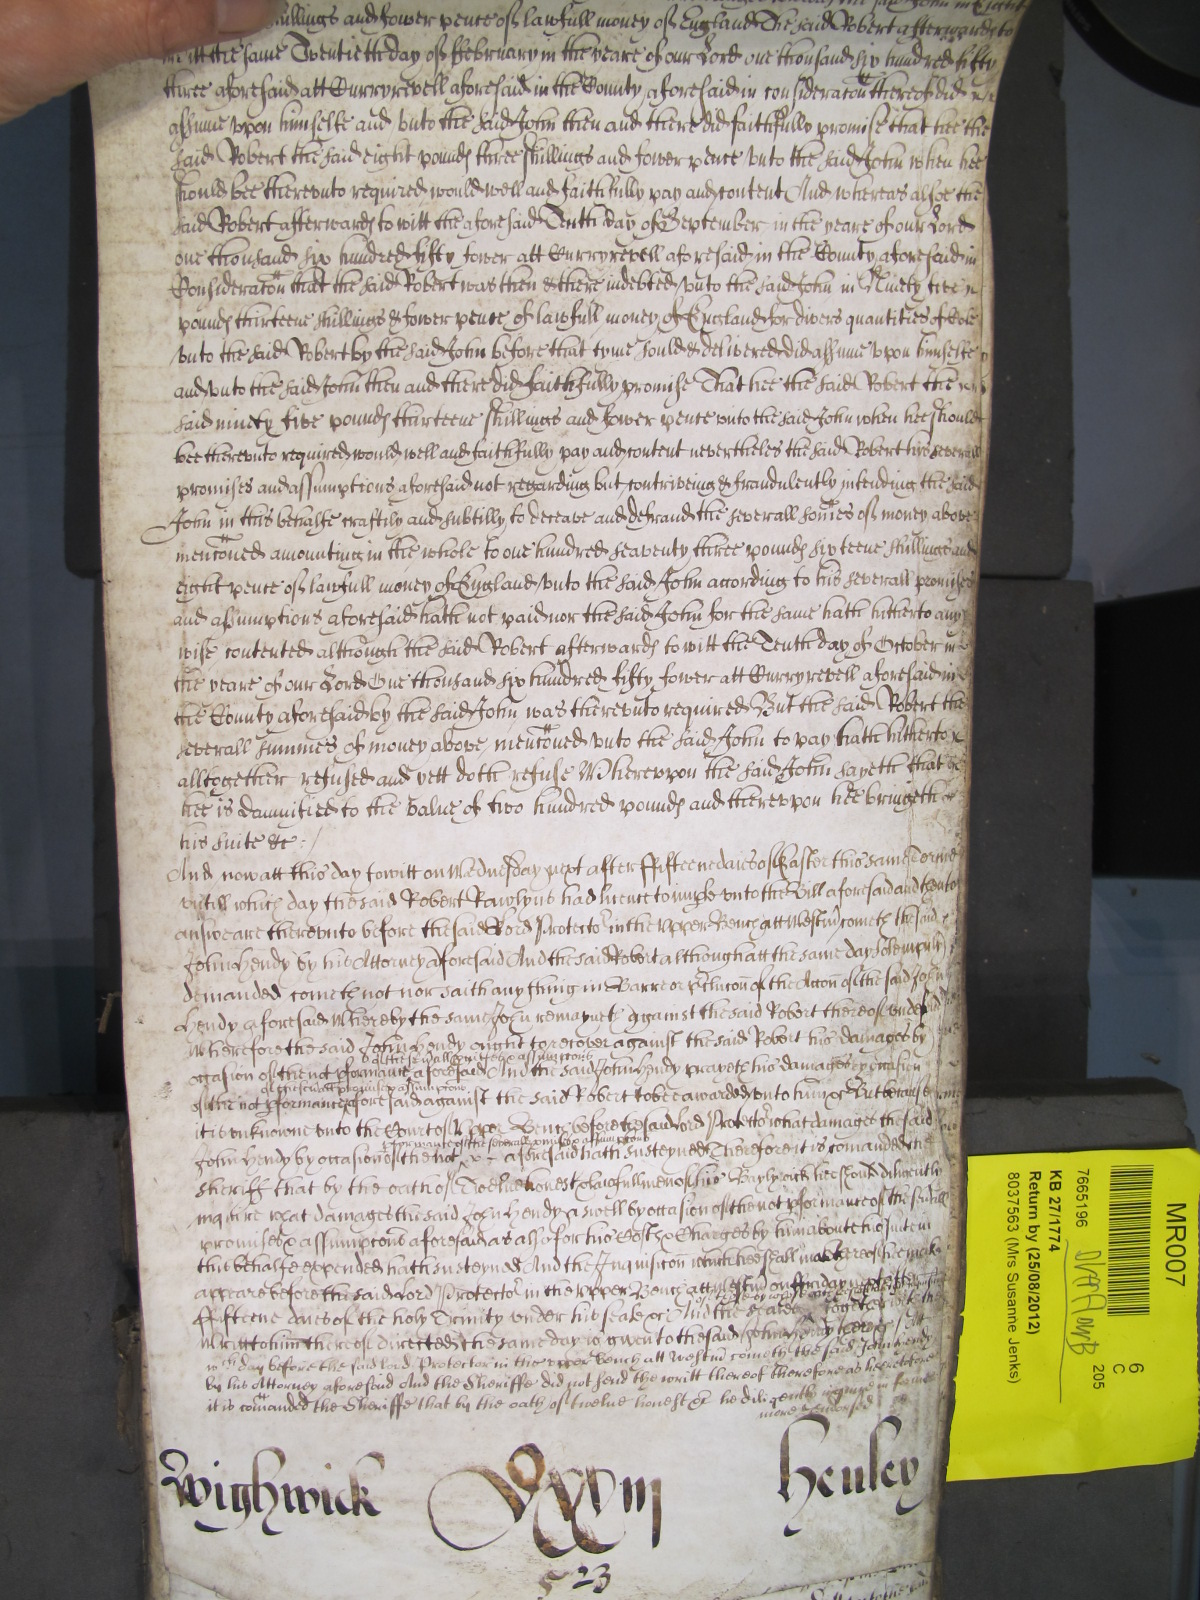 shillings and fower pence of lawfull money of England The said Robert afterwards to
witt the same Twentieth day of February in the yeare of our Lord one thousand six hundred fifty
three aforesaid att Curryrevell aforesaid in the County aforesaid in consideracon thereof did
assume vpon himselfe and vnto the said John then and there did faithfully promise that hee the
said Robert the said eight pounds three shillings and fower pence vnto the said John when hee
should bee therevnto required would well and faithfully pay and content And whereas alsoe the
said Robert afterwards to witt the aforesaid Tenth day of September in the yeare of our Lord
one thousand six hundred fifty fower att Curryrevell aforesaid in the County aforesaid in
Consideracon that the said Robert was then & there indebted vnto the said John in Ninety five
pounds thirteene shillings & fower pence of lawfull money of England for divers quantities of
vnto the said Robert by the said John before that tyme sould & delivered did assume vpon himselfe
and vnto the said John then and there did faithfully promise That hee the said Robert the
said ninety five pounds thirteene shillings and fower pence vnto the said John when hee should
bee therevnto required would well and faithfully pay and content nevertheles the said Robert his severall
promises and assumptions aforesaid not regarding but contriveing & fraudulently intending the said
John in this behalfe craftily and subtilly to deceave and defraud the severall somes of money above
menconed amounting in the whole to one hundred seaventy three pounds sixteene shillings and
eight pence of lawfull money of England vnto the said John according to his severall promises
and assumptions aforesaid hath not paid nor the said John for the same hath hitherto any
wise contented although the said Robert afterwards to witt the Tenth day of October in
the yeare of our Lord One thousand six hundred fifty fower att Curryrevell aforesaid in
the County aforesaid by the said John was therevnto required But the said Robert the
severall summes of money above menconed vnto the said John to pay hath hitherto
alltogether refused and yett doth refuse Wherevpon the said John sayeth that
hee is damnified to the value of two hundred pounds and therevpon hee bringeth
his suite &c
And now att this day to witt on Wednesday next after fifteene daies of Easter this same Terme
vntill which day the said Robert Rawlyns had licence to imparle vnto the Bill aforesaid and then to
answeare therevnto before the said Lord Protector in the Vpper Bench att Westm cometh the said
John Hendy by his Attorney aforesaid And the said Robert although att the same day solempnly
demanded cometh not nor saith any thing in Barre or preclucon of the Accon of the said John
Hendy aforesaid Whereby the same John remayneth against the said Robert thereof
Wherefore the said John Hendy ought to recover against the said Robert his damages by
of the severall promises & assumpcons
occasion of the not performance aforesaid And the said John Hendy prayeth his damages by occasion
of the severall promises & assumpcons
of the not performance aforesaid against the said Robert to bee awarded vnto him &c But because
it is vnknowne vnto the Court of Vpper Bench before the said Lord Protector what damages the said
performance of the severall promises & assumpcons
John Hendy by occasion of the not aforesaid hath susteyned Therefore it is comanded the
Sheriff that by the oath of Twelve honest & lawfull men of his Baylywick hee should diligently
inquire what damages the said John Hendy aswell by occasion of the not performance of the severall
promises & assumpcons aforesaid as also for his Costs & Charges by him about his suite in
this behalfe expended hath susteyned And the Inquisicon which hee shall make
appeare before the said Lord Protector in the Vpper Bench att Westm on Friday next after
fifteene daies of the holy Trinity vnder his seale &c And the together with the
Writt to him thereof directed the same day is given to the said John Hendy there &c Att
which day before the said Lord Protector in the vpper bench att Westm cometh the said John Hendy
by his Attorney aforesaid And the Sheriffe did not send the writt thereof therefore as heretofore
it is comanded the Sheriffe that by the oath of twelve honest &c he diligently inquire in forme
Wightwick
Henley
523
MR007
6
C
205
7665196
KB 27/1774
Return by (25/08/2012)
8037563 (Mrs Susanne Jenks)